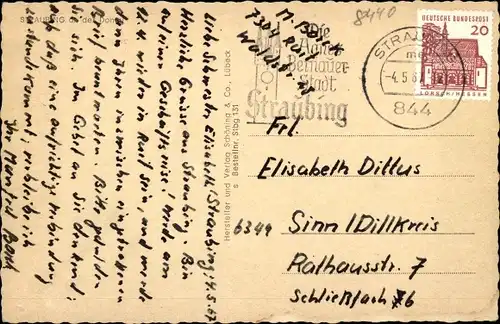 STRAUBING an der Donau
Liebe Schwester Elisabeth! Straubing, 4.5.67
Herzliche Grüsse aus Straubing. Bin
auf einer Geschäftsreise! Werde am
in Ruit sein und werde
dann Ihren inzwischen eingetroffenen
Brief beantworten. Bitte gedulden
Sie sich. Im Gebet an Sie denkend
und daß eine aufrichtige Verbindung
zustandekommt, verbleibe ich
Ihr Manfred Bock
Hersteller und Verlag Schöning & Co., Lübeck
s Bestellnr. Stbg 131
M. Bock
7304 Ruit
Die
Agnes
Bernauer-
Stadt
Straubing
STRAUBING
-4.5.67
844
8440
DEUTSCHE BUNDESPOST
20
LORSCH/HESSEN
Frl.
Elisabeth Dittus
6349 Sinn / Dillkreis
Rathausstr. 7
Schließfach 76